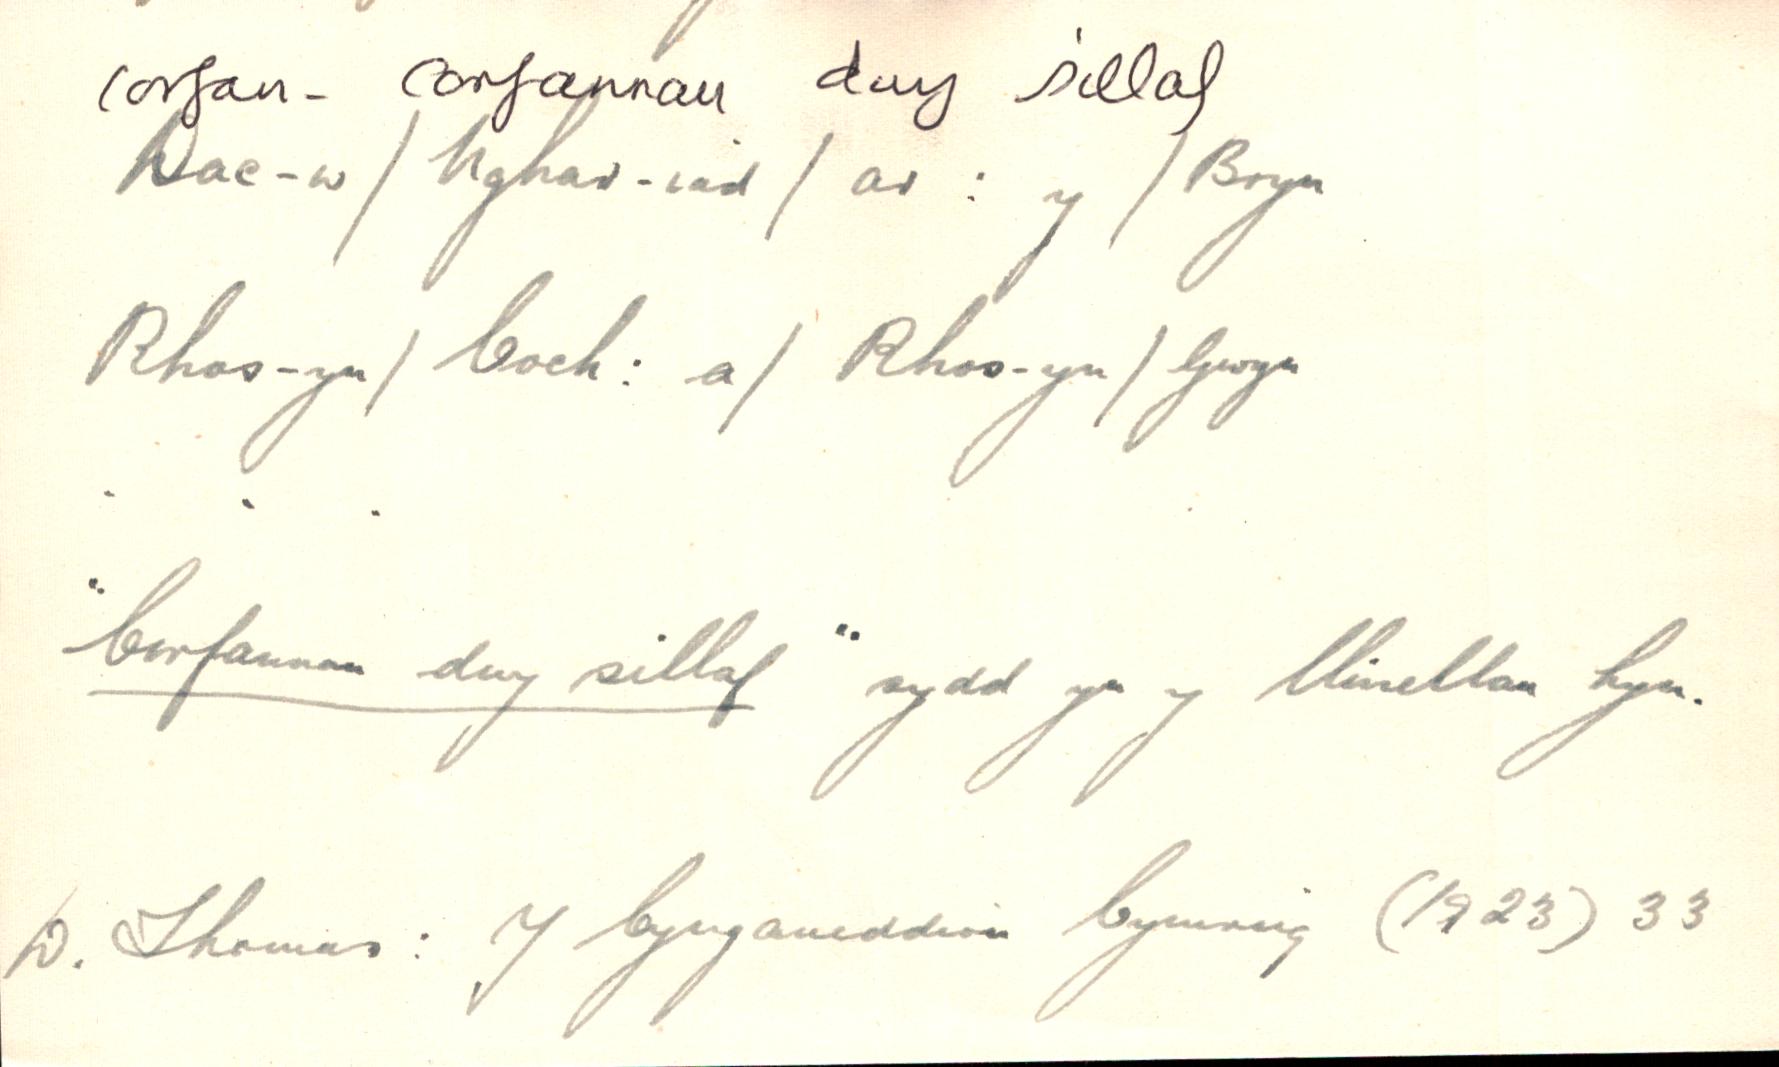 corfan - corfannau dwy sillaf
Dac-w / Nghar-iad / ar : y / Bryn
Rhos-yn / Coch : a / Rhos-yn / Gwyn
. . .
"Corfannau dwy sillaf" sydd yn y llinellau hyn.
D. Thomas: Y Cynganeddion Cymreig (1923) 33